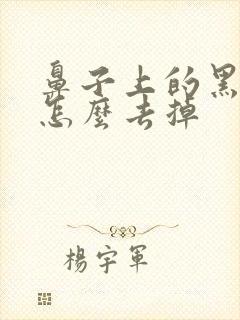 鼻子上的黑
怎麼去掉
楊宇軍